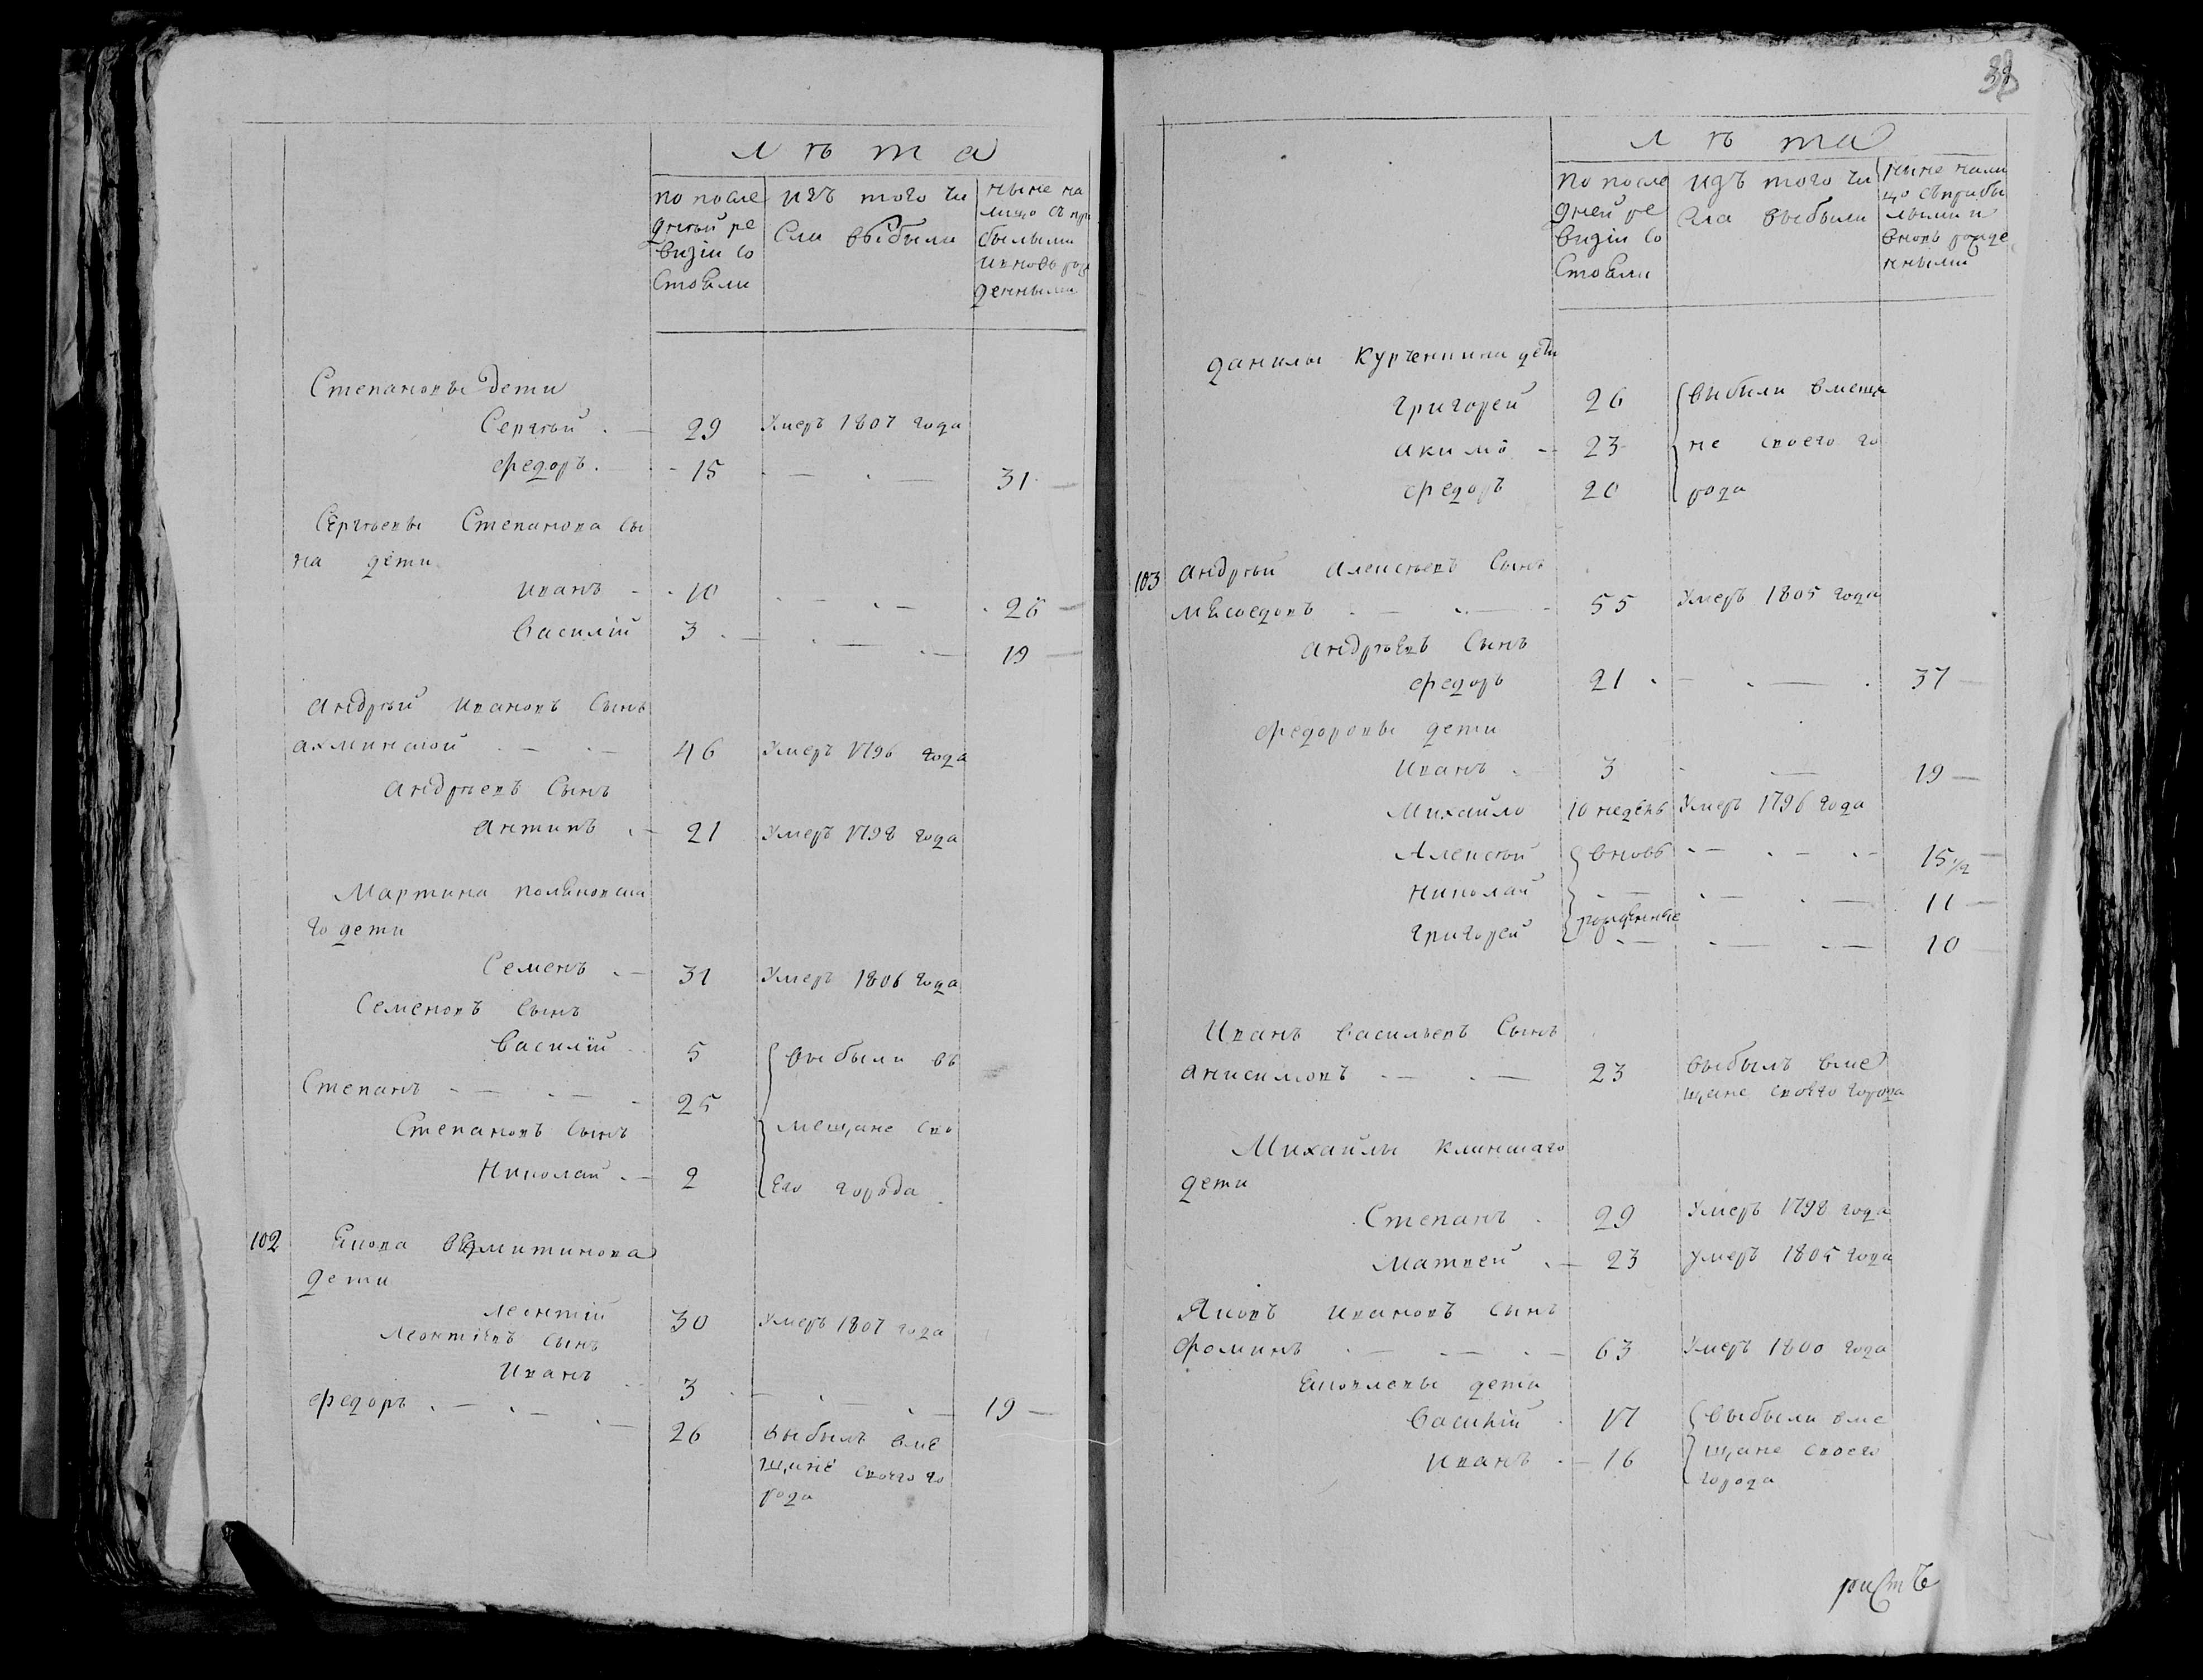 лѣта
по после
дней ре
визіи со
стояли
изъ того чи
сла выбыли
ныне на
лицо съ при
былыми
и вновь рож
денными
Степановы дети
Сергѣй 29 Умеръ 1807 года
Федоръ 15 31
Сергѣевы Степанова сы
на дети
Иванъ 10 26
Василій 3 19
Андрѣй Ивановъ Сынъ
Ахминской 46 Умеръ 1796 года
Андрѣевъ Сынъ
Антипъ 21 Умеръ 1798 года
Мартина Поляковска
го дети
Семенъ 31 Умеръ 1806 года
Семеновъ Сынъ
Василій 5 выбыли въ
Степанъ 25
Степановъ Сынъ мещане сво
Николай 2 его города
102 Якова
дети
Леонтій 30 Умеръ 1807 года
Леонтіевъ сынъ
Иванъ 3 19
Федоръ 26 выбылъ вме
щане своего го
рода
38
лѣта
по после
дней ре
визіи со
стояли
изъ того чи
сла выбыли
ныне нали
цо съ прибы
лыми и
вновь рожде
нными
Данилы Курченина дѣти
Григорей 26 выбыли вмеща
Акимъ 23 не своего го
Федоръ 20 рода
103 Андрѣй Алексѣевъ Сынъ
Мясоедовъ 55 Умеръ 1805 года
Андрѣевъ Сынъ
Федоръ 21 37
Федоровы дети
Иванъ 3 19
Михайло 10 недель Умеръ 1796 года
Алексѣй вновь 15 1/2
Николай 11
Григорей рожденные 10
Иванъ Васильевъ Сынъ
Анисимовъ 23 выбылъ вме
щане своего города
Михайлы Клинскаго
дети
Степанъ 29 Умеръ 1798 года
Матвей 23 умеръ 1805 года
Яковъ Ивановъ сынъ
Фоминъ 63 Умеръ 1800 года
Яковлевы дети
Василій 17 выбыли вме
Иванъ 16 щане своего
города